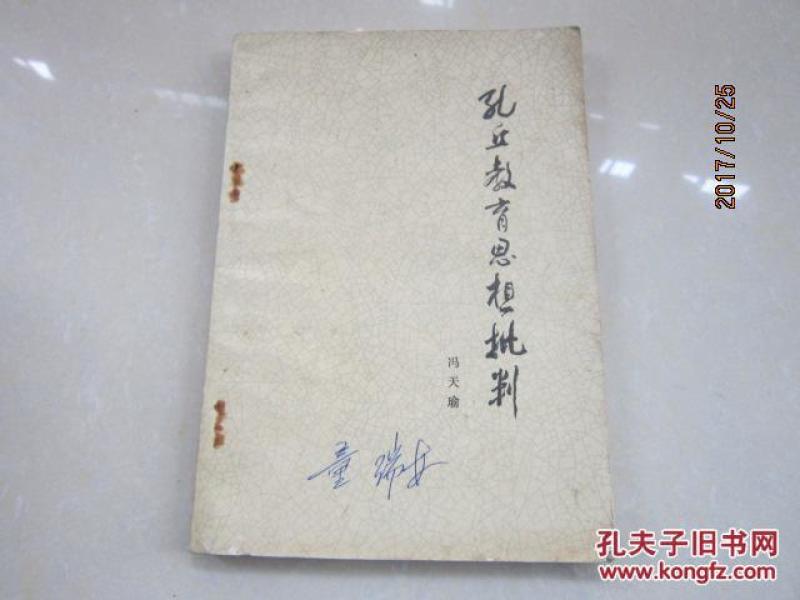 孔丘教育思想批判
冯天瑜
童瑞
2017/10/25
孔夫子旧书网
www.kongfz.com